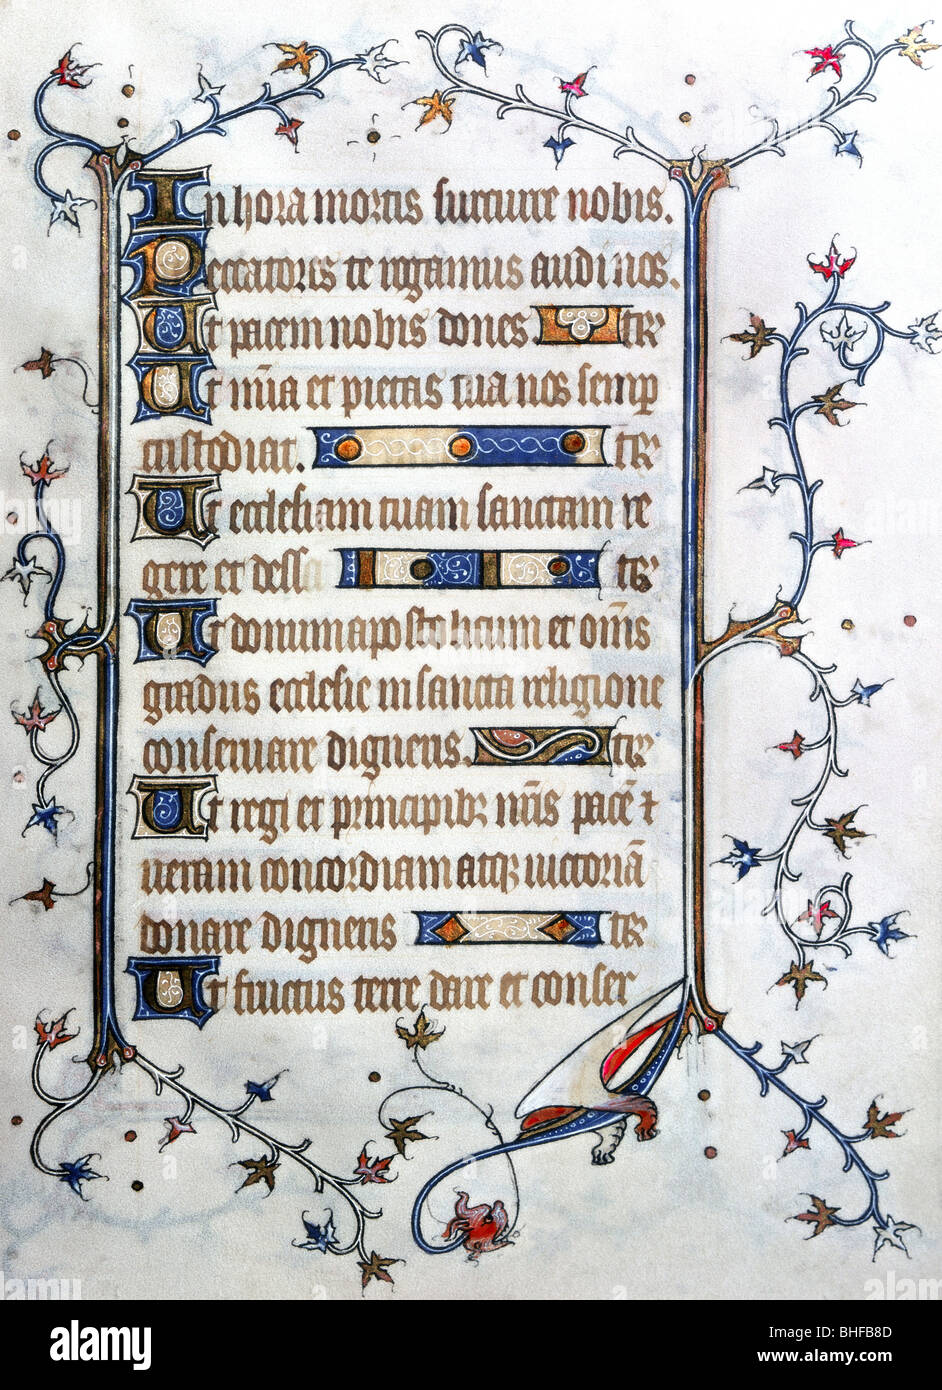 In hora mortis succurre nobis.
Peccatores te rogamus audi nos.
Ut pacem nobis dones te r
Ut mīa et pietas tua nos semp
custodiat. te r
Ut ecclesiam tuam sanctam re
gere et deff te r
Ut donum apostolicum et om̄s
gradus ecclesie in sancta religione
conservare digneris. te r
Ut regi et principibꝫ nr̄is pacē ⁊
veram concordiam atqꝫ victoriā
donare digneris te r
Ut fructus terre dare et conser
alamy
Image ID: BHFB8D
www.alamy.com